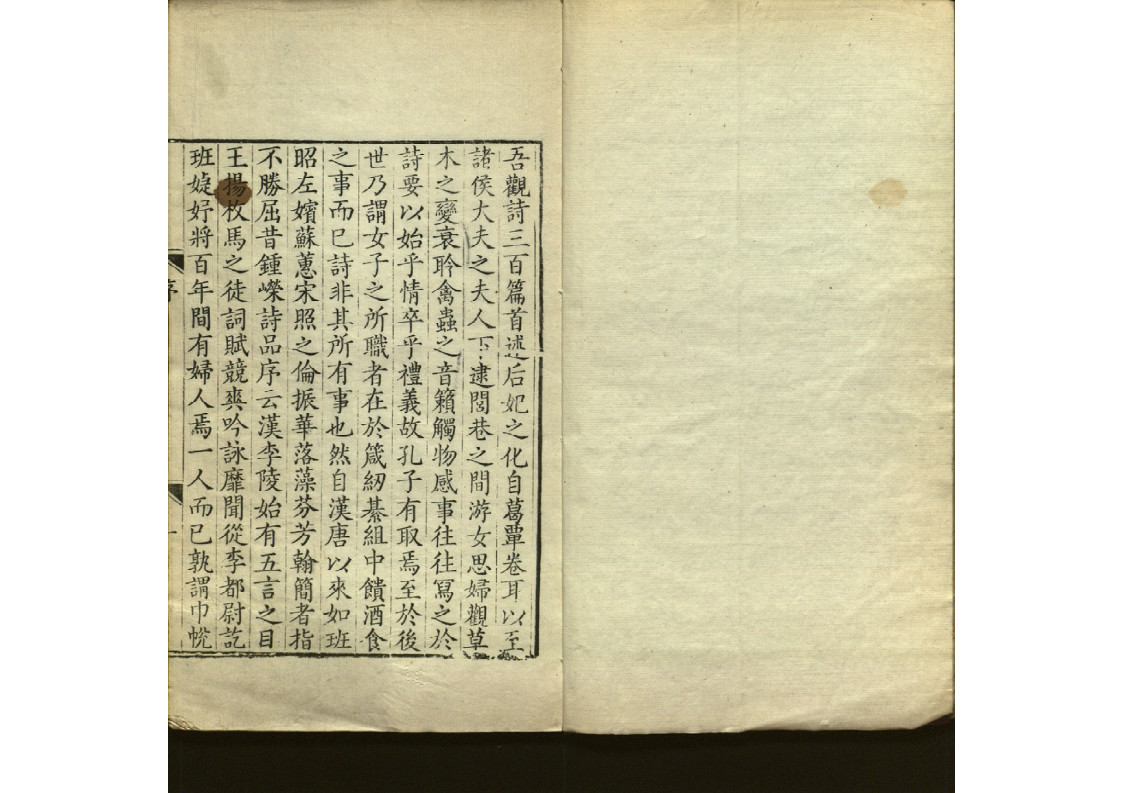 吾觀詩三百篇首述后妃之化自葛覃卷耳以至
諸侯大夫之夫人下逮閭巷之間游女思婦觀草
木之變衰聆禽蟲之音籟觸物感事往往寫之於
詩要以始乎情卒乎禮義故孔子有取焉至於後
世乃謂女子之所職者在於箴紉綦組中饋酒食
之事而已詩非其所有事也然自漢唐以來如班
昭左嬪蘇蕙宋照之倫振華落藻芬芳翰簡者指
不勝屈昔鍾嶸詩品序云漢李陵始有五言之目
王揚枚馬之徒詞賦競爽吟詠靡聞從李都尉訖
班婕妤將百年間有婦人焉一人而已孰謂巾帨
序
一